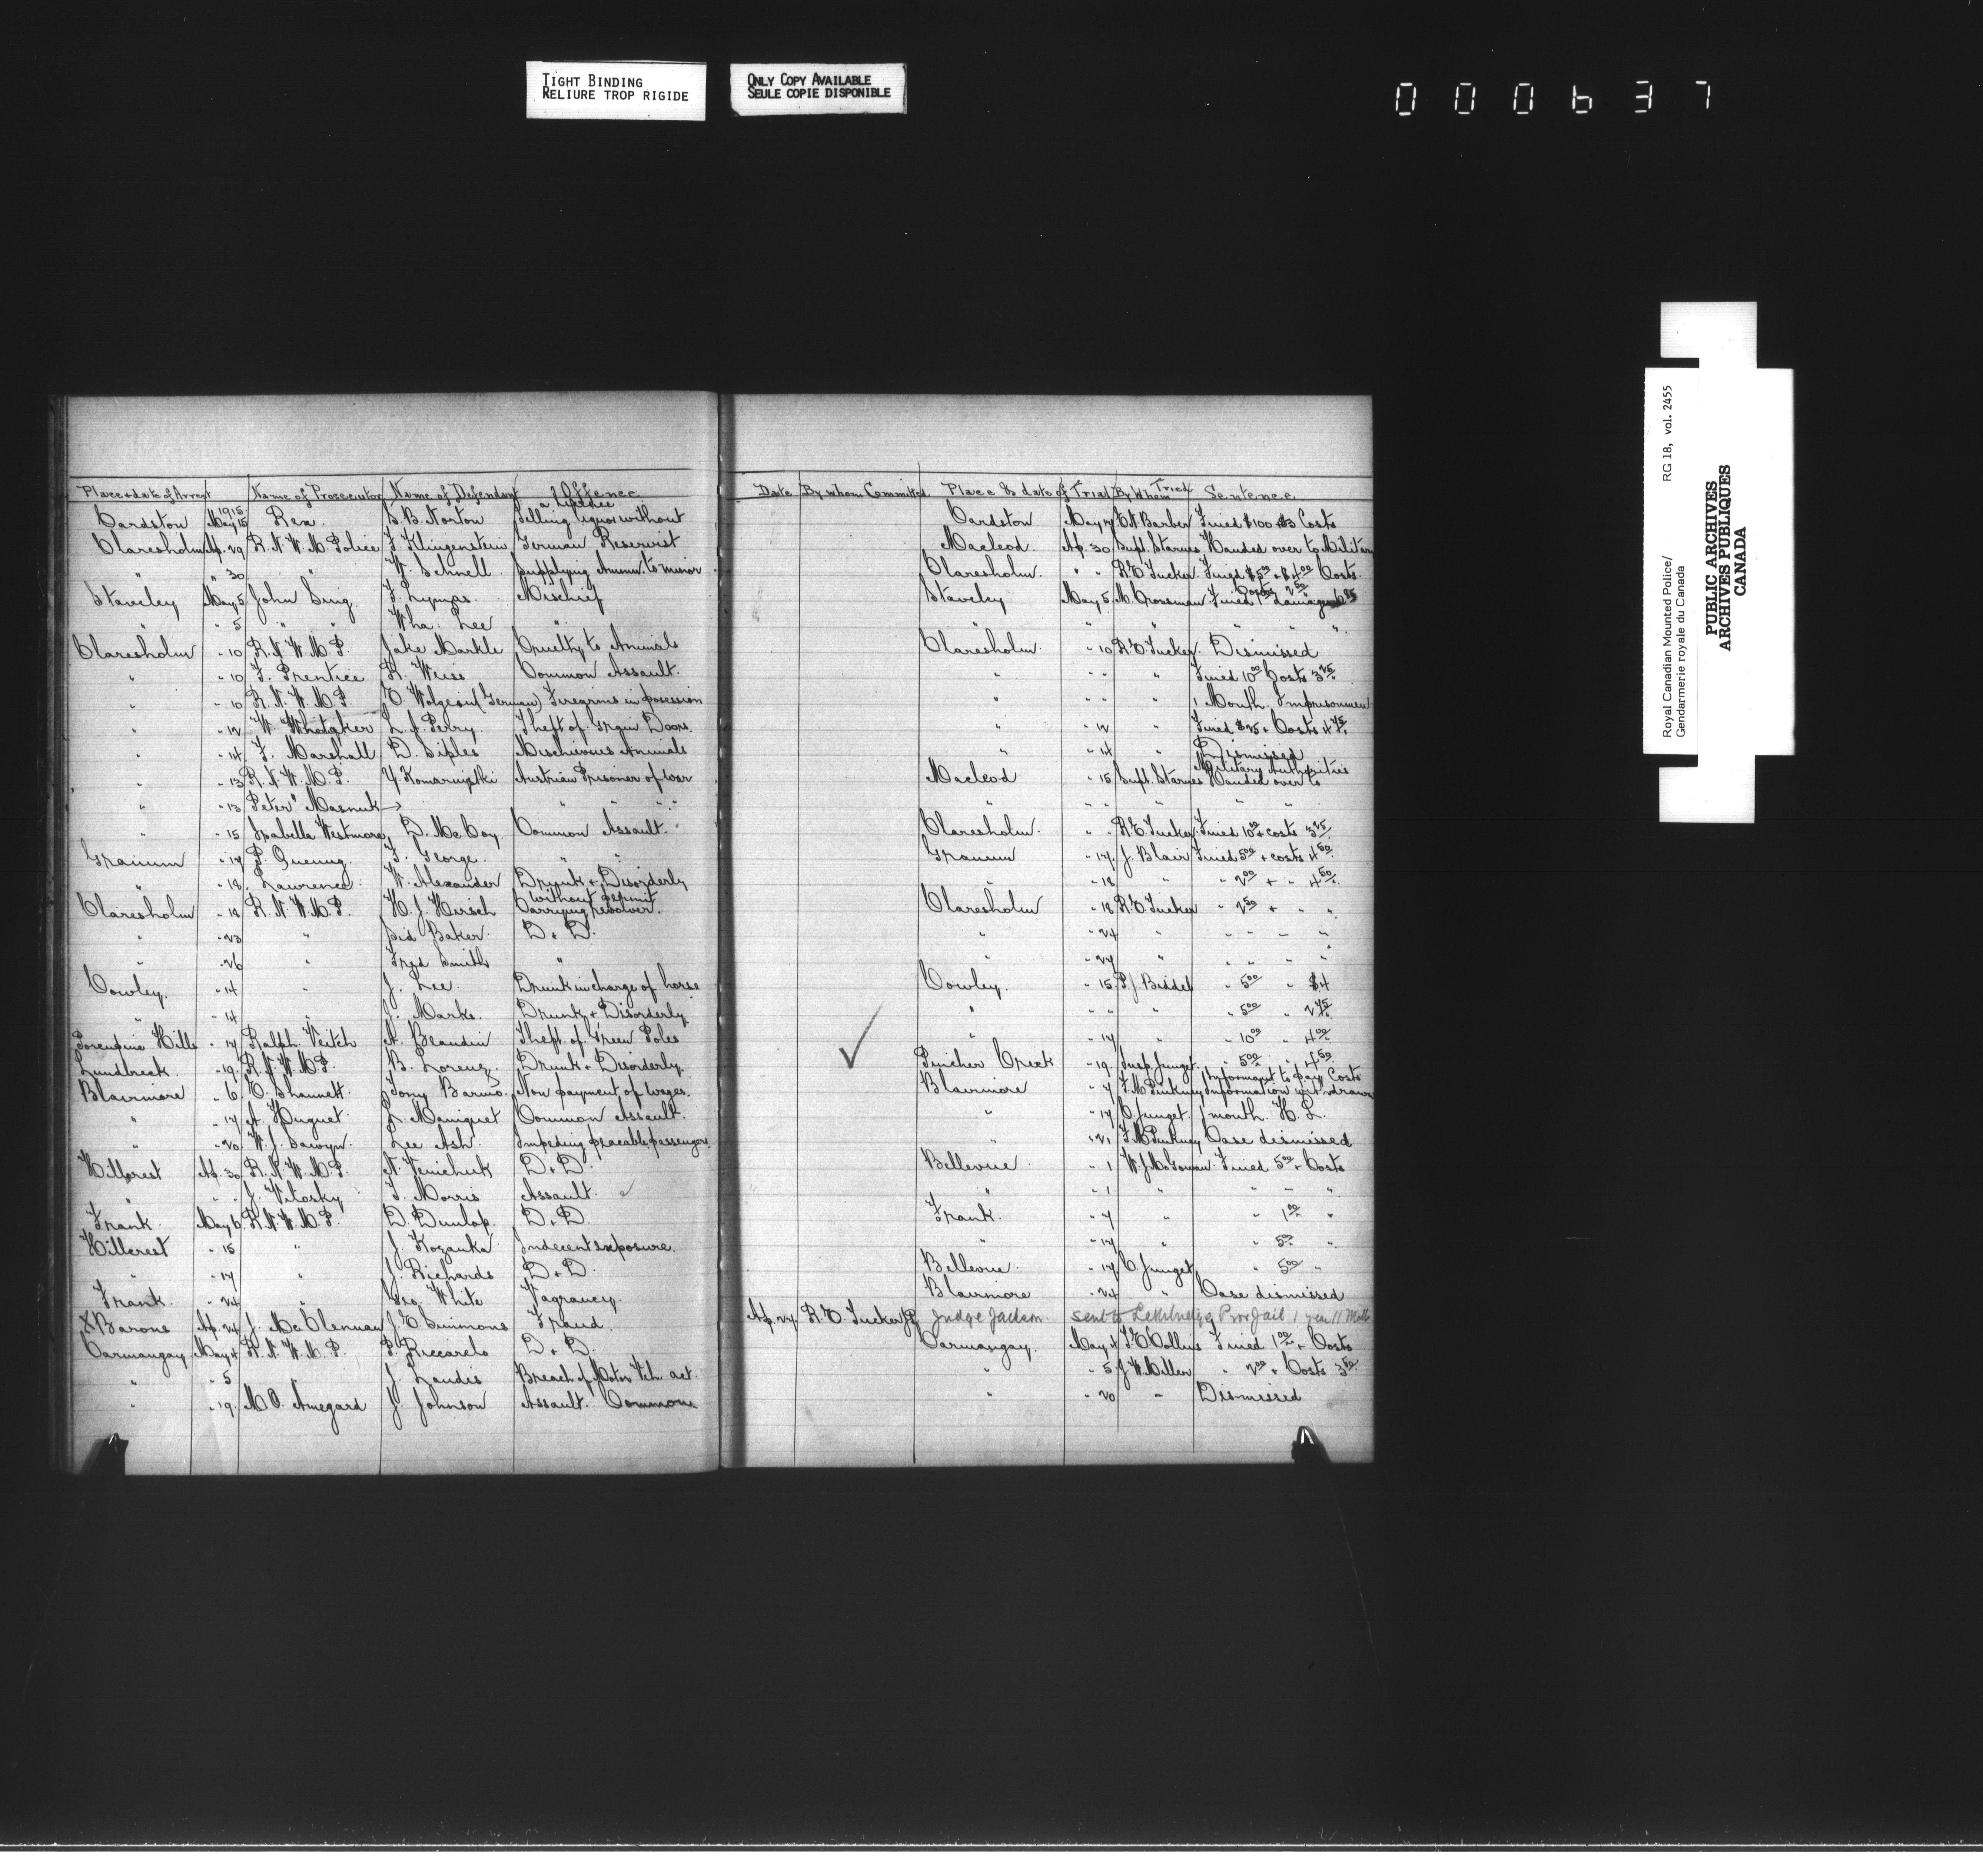 TIGHT BINDING
RELIURE TROP RIGIDE
ONLY COPY AVAILABLE
SEULE COPIE DISPONIBLE
000637
Royal Canadian Mounted Police/ RG 18, vol. 2455
Gendarmerie royale du Canada
PUBLIC ARCHIVES
ARCHIVES PUBLIQUES
CANADA
Place & date of Arrest Name of Prosecutor Name of Defendant Offence Date By whom Committed Place & date of Trial By Whom Tried Sentence
Cardston 1915 May 15 Rex. B. B. Norton Selling liquor without a license Cardston May 17 Barber Fined $100 $3 Costs
Claresholm Ap. 29 R. N. W. M. Police F. Klingenstein German Reservist Macleod. Ap. 30 Supt. Starnes Handed over to Military
" " 30 " W. Schnell. Supplying Ammn. to minor Claresholm. " " R. C. Tucker. Fined $5.00 & $4.00 Costs.
Staveley May 5 John Sing. F. Lymas. Mischief Staveley May 5 M. Crossman Fined 1.00 Costs 2.50 damage
" " 5 " " Wha. Lee " " " " " " "
Claresholm " 10 R. N. W. M. P. Jake Markle Cruelty to Animals Claresholm. " 10 R. C. Tucker. Dismissed
" " 10 F. Prentice R. Weiss Common Assault. " " " " Fined 10.00 Costs 3.25
" " 10 R. N. W. M. P. C. Wolgeun (German) Firegrims in posession " " " " 1 Month Imprisonment
" " 12 W. Whitaker L. A. Perry. Theft of Grain Doors. " " 12 " Fined $25 & Costs 4.75
" " 14 F. Marshall D. Siples Mischievous Animals " " 14 " Dismissed
" " 13 R. N. W. M. P. Y. Komarnistki Austrian Prisoner of war Macleod " 15 Supt. Starnes Handed over to Military Authorities
" " 13 Peter " Masnuk → " " " " " " " " "
" " 15 Isabella Westmore, D. McCoy. Common Assault. Claresholm. " " R. C. Tucker. Fined 10.00 & costs 3.25
Granum " 17 P. Quenng. F. George. " " Granum " 17. J. Blair Fined 5.00 & costs 4.50
" " 18. Lawrence. W. Alexander Drunk & Disorderly " " 18 " " 2.00 & " 4.50
Claresholm " 18 R. N. W. M. P. H. J. Hirsch Carrying revolver. without permit Claresholm " 18 R. C. Tucker " 2.50 & " "
" " 23 " Sid Baker. D & D. " " 24 " " " " "
" " 26 " Fred Smith " " " 27 " " " " "
Cowley. " 14 " J. Lee. Drunk in charge of horse Cowley. " 15. P. J. Biddel " 5.00 " $4
" " 14 " J. Marks. Drunk & Disorderly " " " " " 5.00 " 2.75
Porcupine Hills " 17 Ralph Veitch A. Beaudin Theft of Green Poles " " 17 " " 10.00 " 4.00
Lundbreck. " 19. R. N. W. M. P. B. Lorenz. Drunk & Disorderly. ✓ Pincher Creek " 19. Insp. Junget. " 5.00 " 4.50
Blairmore " 6. C. Shannett. Tony Barmo. Non payment of wages. Blairmore " 7 F. M. Pinkney Information withdrawn Informant to pay Costs
" " 17 A. Huguet. L. Maniquet Common Assault. " " 17 C. Junget. 1 month. H. L.
" " 20 W. J. Sawyn. Lee Ash. Impeding peacable passengers. " " 21 F. M. Pinkney Case dismissed
Hillcrest Ap. 30 R. N. W. M. P. N. Venichuk D & D. Bellevue. " 1 W. J. McGowan. Fined 5.00 & Costs
" " " J. Vitosky T. Morris Assault. ✓ " " 1 " " " "
Frank. May 6 R. N. W. M. P. D. Dunlop. D & D. Frank. " 7 " " 1.00 "
Hillcrest " 15 " J. Kozanka Indecent exposure. " " 17 " " 5.00 "
" " 17 " J. Richards D & D. Bellevue. " 17 C. Junget " 5.00 "
Frank. " 24 " Geo. White Vagrancy. Blairmore " 24 " Case dismissed
X Barons Ap. 24 J. McClennan J. C. Simmons Fraud. Ap. 27 R. C. Tucker JP Judge Jackson. sent to Lethbridge Prov Jail 1 year 11 Mths
Carmangay. May 4 R. N. W. M. P. P. Riccardo D & D. Carmangay. May 4 Collins Fined 1.00 & Costs
" " 5 " J. Landis Breach of Motor Veh. act. " " 5 J. W. Miller " 2.00 & Costs 3.50
" " 19. M. O. Amegard J. Johnson Assault. Common. " " 20 " Dismissed